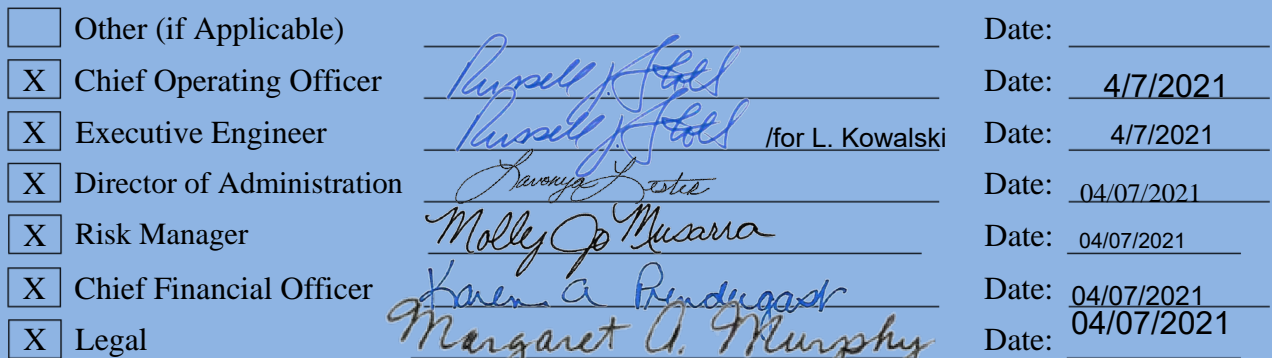 Other (if Applicable) Date:
X Chief Operating Officer Russell J. Stoll Date: 4/7/2021
X Executive Engineer Russell J. Stoll /for L. Kowalski Date: 4/7/2021
X Director of Administration Lavonya Lester Date: 04/07/2021
X Risk Manager Molly Jo Musarra Date: 04/07/2021
X Chief Financial Officer Karen A Prendergast Date: 04/07/2021
X Legal Margaret A. Murphy Date: 04/07/2021